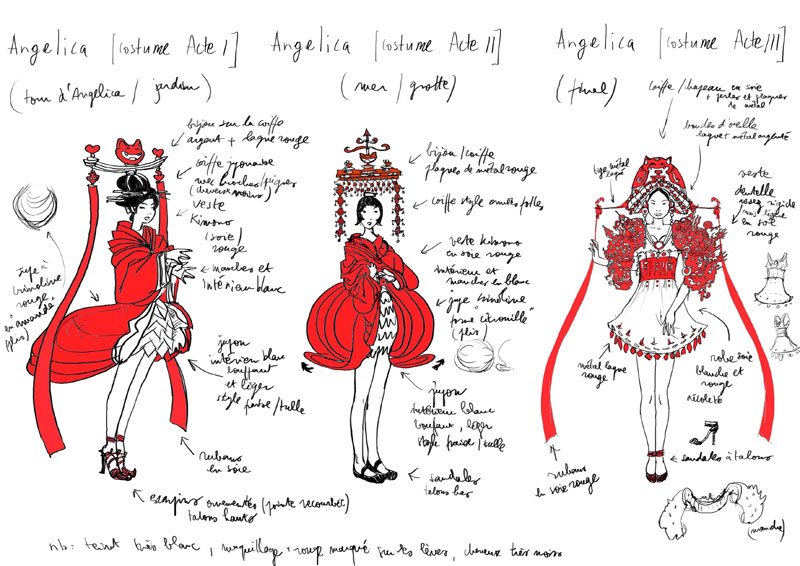 Angelica [costume Acte I]
(tour d'Angelica / jardin)
bijou sur la coiffe
argent + laque rouge
coiffe japonaise
avec broches/peignes
(cheveux noirs)
veste
Kimono
(soie)
rouge
manches et
intérieur blanc
jupe à
crinoline
rouge
"en amande"
(plis)
jupon
intérieur blanc
bouffant
et léger
style /tulle
rubans
en soie
escarpins ornementés (pointe recourbée)
talons hauts
Angelica [costume Acte II]
(mer / grotte)
bijou/coiffe
plaques de métal rouge
coiffe style années folles
veste kimono
en soie rouge
intérieur et
manches en blanc
jupe "crinoline"
forme citrouille"
(plis)
jupon
intérieur blanc
bouffant, léger
style /tulle
sandales
talons bas
Angelica [costume Acte III]
(final)
coiffe/chapeau en soie
+ perles et plaques
de métal
boucles d'oreille
laque et métal argenté
tige métal
laqué
veste
dentelle
assez rigide
mais légère
en soie
rouge
métal laqué
rouge
robe soie
blanche et
rouge
sandales à talons
rubans
en soie rouge
(manche)
nb: teint très blanc, maquillage rouge marqué sur les lèvres, cheveux très noirs